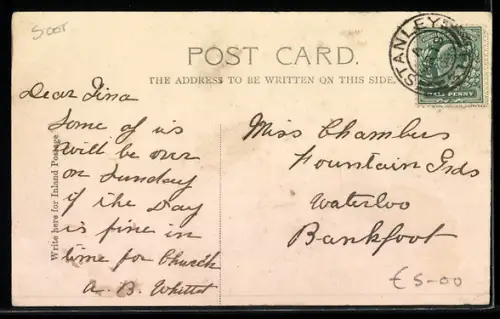 5001
POST CARD.
THE ADDRESS TO BE WRITTEN ON THIS SIDE.
STANLEY
HALF PENNY
Write here for Inland Postage
Dear Tina
Some of us
will be over
on Sunday
if the Day
is fine in
time for Church
A. B.
Miss Chambers
Fountain Gds
Waterloo
Bankfoot
£5-00